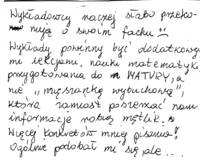 Wykładowcy raczej słabo przeko-
nują o swoim fachu
Wykłady powinny być dodatkową
mi lekcjami, nauki matematyki
przygotowania do MATURY, a
nie „mieszanką wybuchową",
która zamiast poszerzać nam
informacje robią mętlik.
Więcej konkretów mniej pisania!
Ogólnie podobał mi się ale...